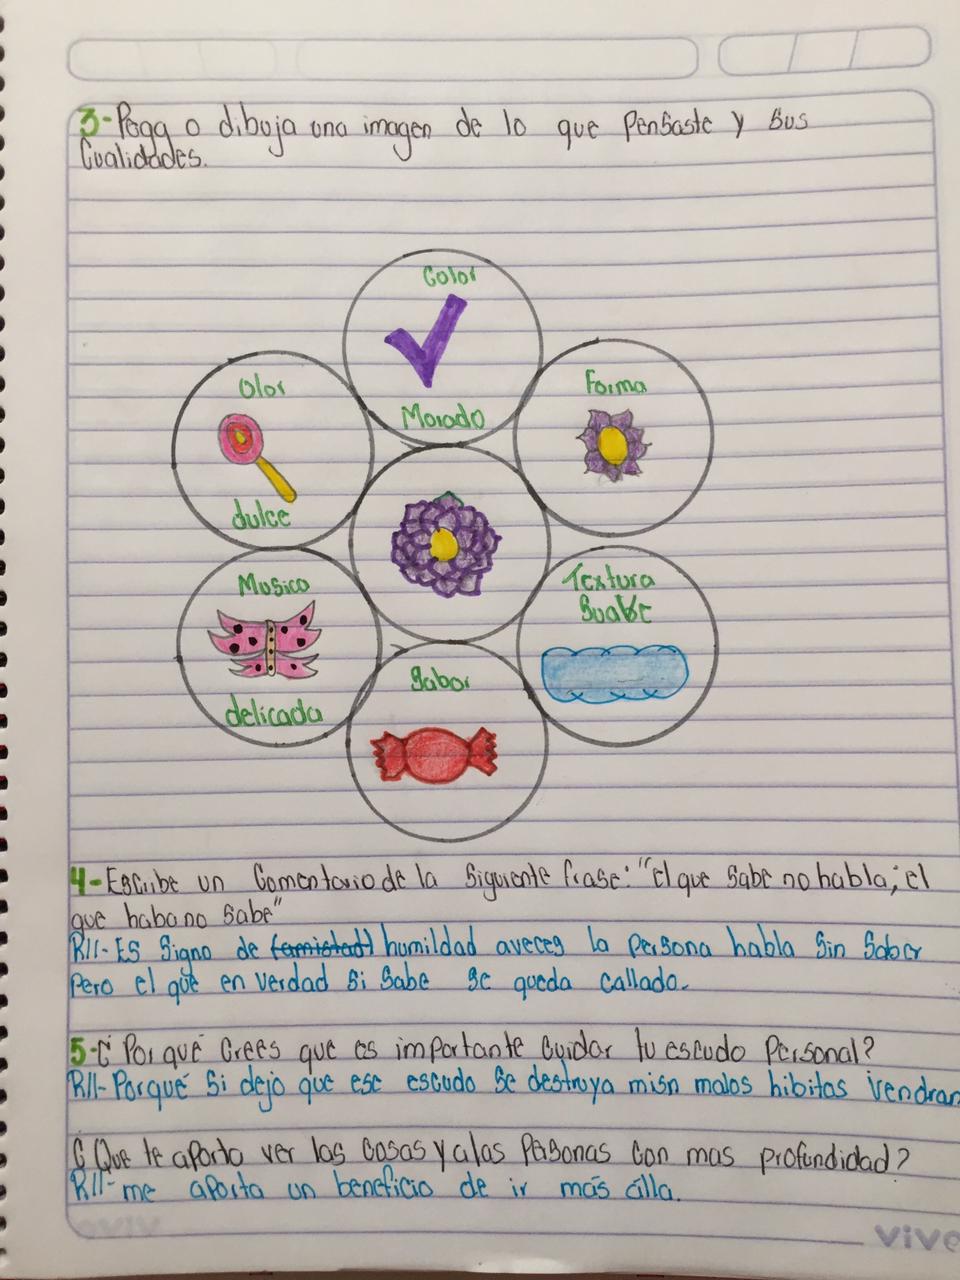 3-Pega o dibuja una imagen de lo que pensaste y sus
Cualidades.
Color
Morado
Olor
dulce
Forma
Musico
delicada
Textura
Suabe
Sabor
4-Escribe un Comentario de la siguiente frase: "el que sabe no habla; el
que haba no sabe"
R//-Es signo de (amistad) humildad aveces la persona habla sin saber
pero el que en verdad si sabe se queda callado.
5-¿Por qué crees que es importante cuidar tu escudo personal?
R//-Porqué si dejo que ese escudo se destruya misn malos hibitos vendran
¿Que te aporto ver las cosas y a las personas con mas profundidad?
R//-me aporta un beneficio de ir más álla.
vive